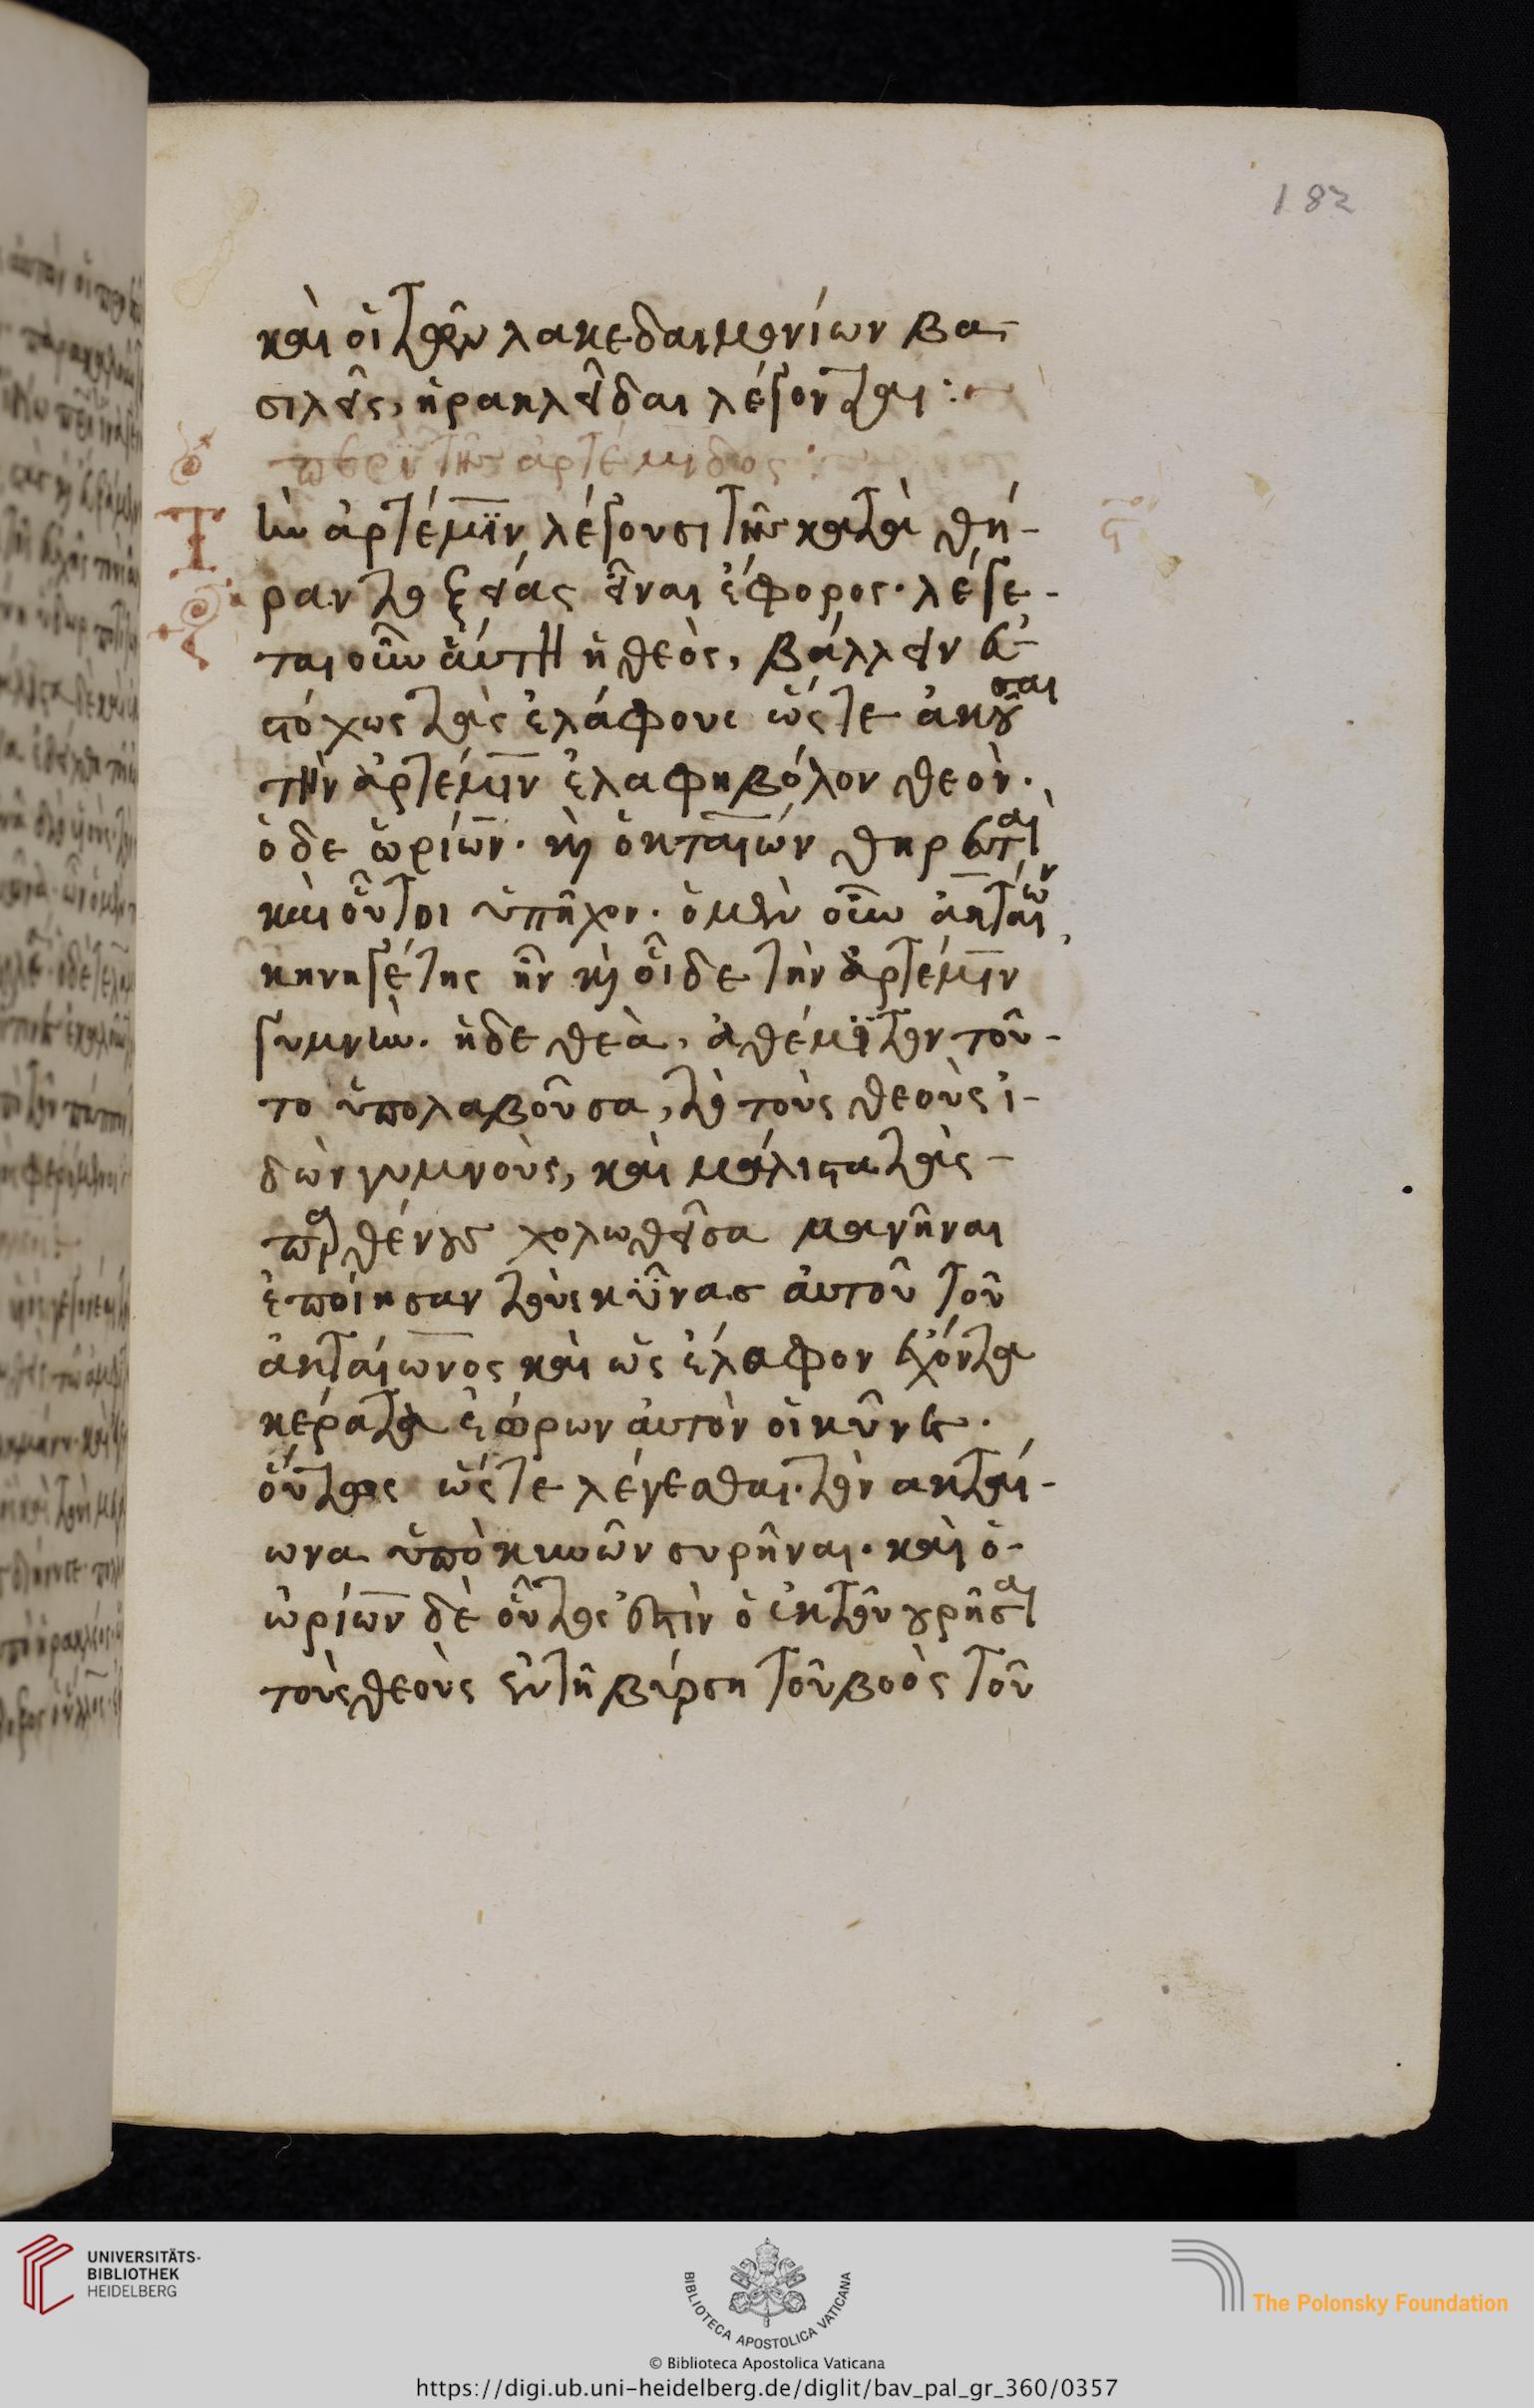 182
καὶ οἱ τῶν λακεδαιμονίων βα-
σιλεῖς, ἡρακλεῖδαι λέγονται :
περὶ τῆς ἀρτέμιδος :
Τὴν ἀρτέμϊν λέγουσι τῆς κατὰ θή-
ραν τοξείας εἶναι ἔφορος· λέγε-
ται οὖν ἅυτη ἡ θεὸς, βάλλειν ἐ-
πόχως τὰς ἐλάφους ὥστε ἀκοῦσαι
τὴν ἀρτέμιν ἐλαφηβόλον θεὸν.
ὁ δε ὠρίων. κὶ ὁ ἀκταίων θηρευταὶ
καὶ οὗτοι ὑπῆχον. ὁ μὲν οὖν ἀκταίων
κηνηγέτης ἦν κὶ οἶδε τὴν ἀρτέμιν
γυμνὴν. ἡ δε θεὰ, ἀθέμϊτον τοῦ-
το ὑπολαβοῦσα, τὸ τοὺς θεοὺς ἰ-
δὼν γυμνοὺς, καὶ μάλιστα τὰς
παρθένους χολωθεῖσα μανῆναι
ἐποίησαν τοὺς κῢνας ἀυτοῦ τοῦ
ἀκταίωνος καὶ ὡς ἔλαφον ἔχοντα
κέρατα ἑώρων ἀυτὸν οἱ κῦνες.
ὅυτως ὥστε λέγεσθαι. τὸν ακταί-
ωνα ὑπὸ κυνῶν συρῆναι. καὶ ὁ
ὠρίων δὲ οὗτος ἐστὶν ὁ ἐκ τῶν
τοὺς θεοὺς ἐν τῆ βύρση τοῦ βοὸς τοῦ
UNIVERSITÄTS-
BIBLIOTHEK
HEIDELBERG
BIBLIOTECA APOSTOLICA VATICANA
The Polonsky Foundation
© Biblioteca Apostolica Vaticana
https://digi.ub.uni-heidelberg.de/diglit/bav_pal_gr_360/0357